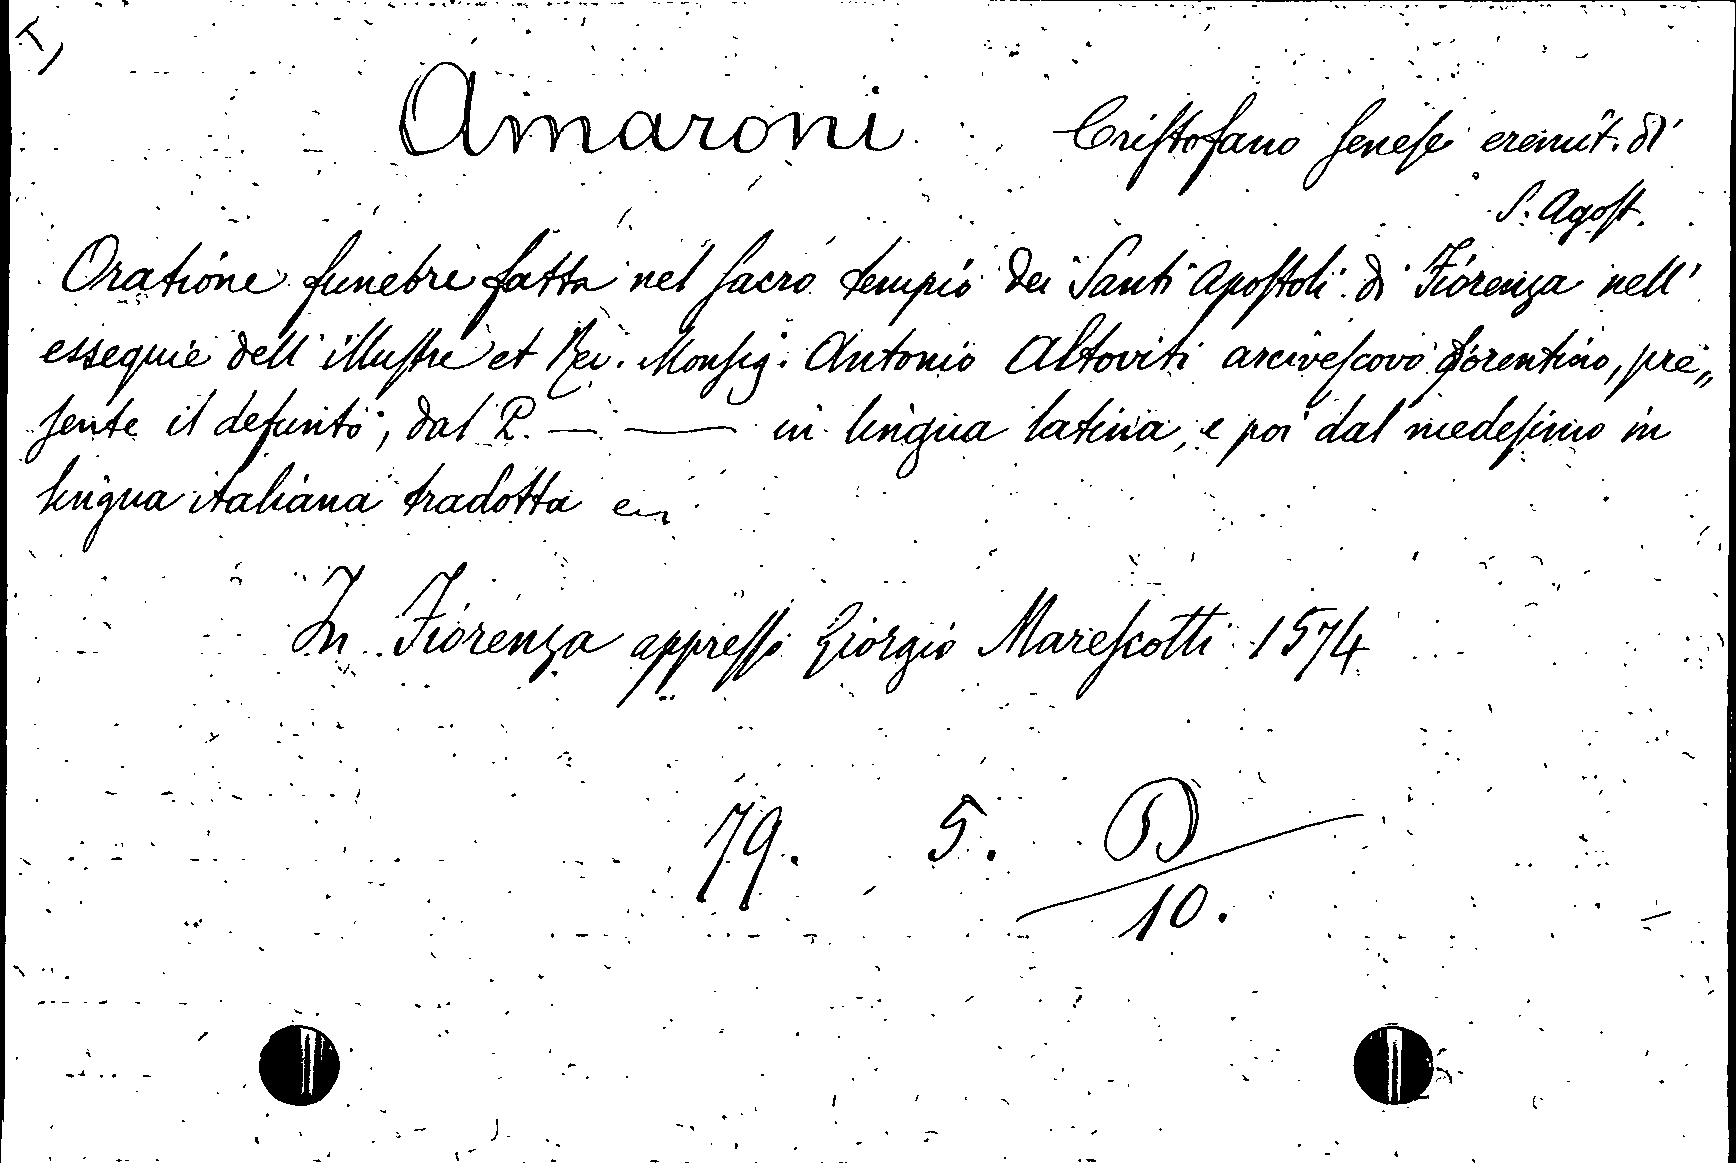 Amaroni Cristofano senese eremit. di
S. Agost.
Oratione funebre fatta nel sacro tempio dei Santi Apostoli di Fiorenza nell'
essequie dell' illustre et Rev. Monsig. Antonio Altoviti arcivescovo fiorentino, pre„
sente il defunto, dal P. — — in lingua latina, e poi dal medesimo in
lingua italiana tradotta
In Fiorenza appresso Giorgio Marescotti 1574
79. 5. D
10.